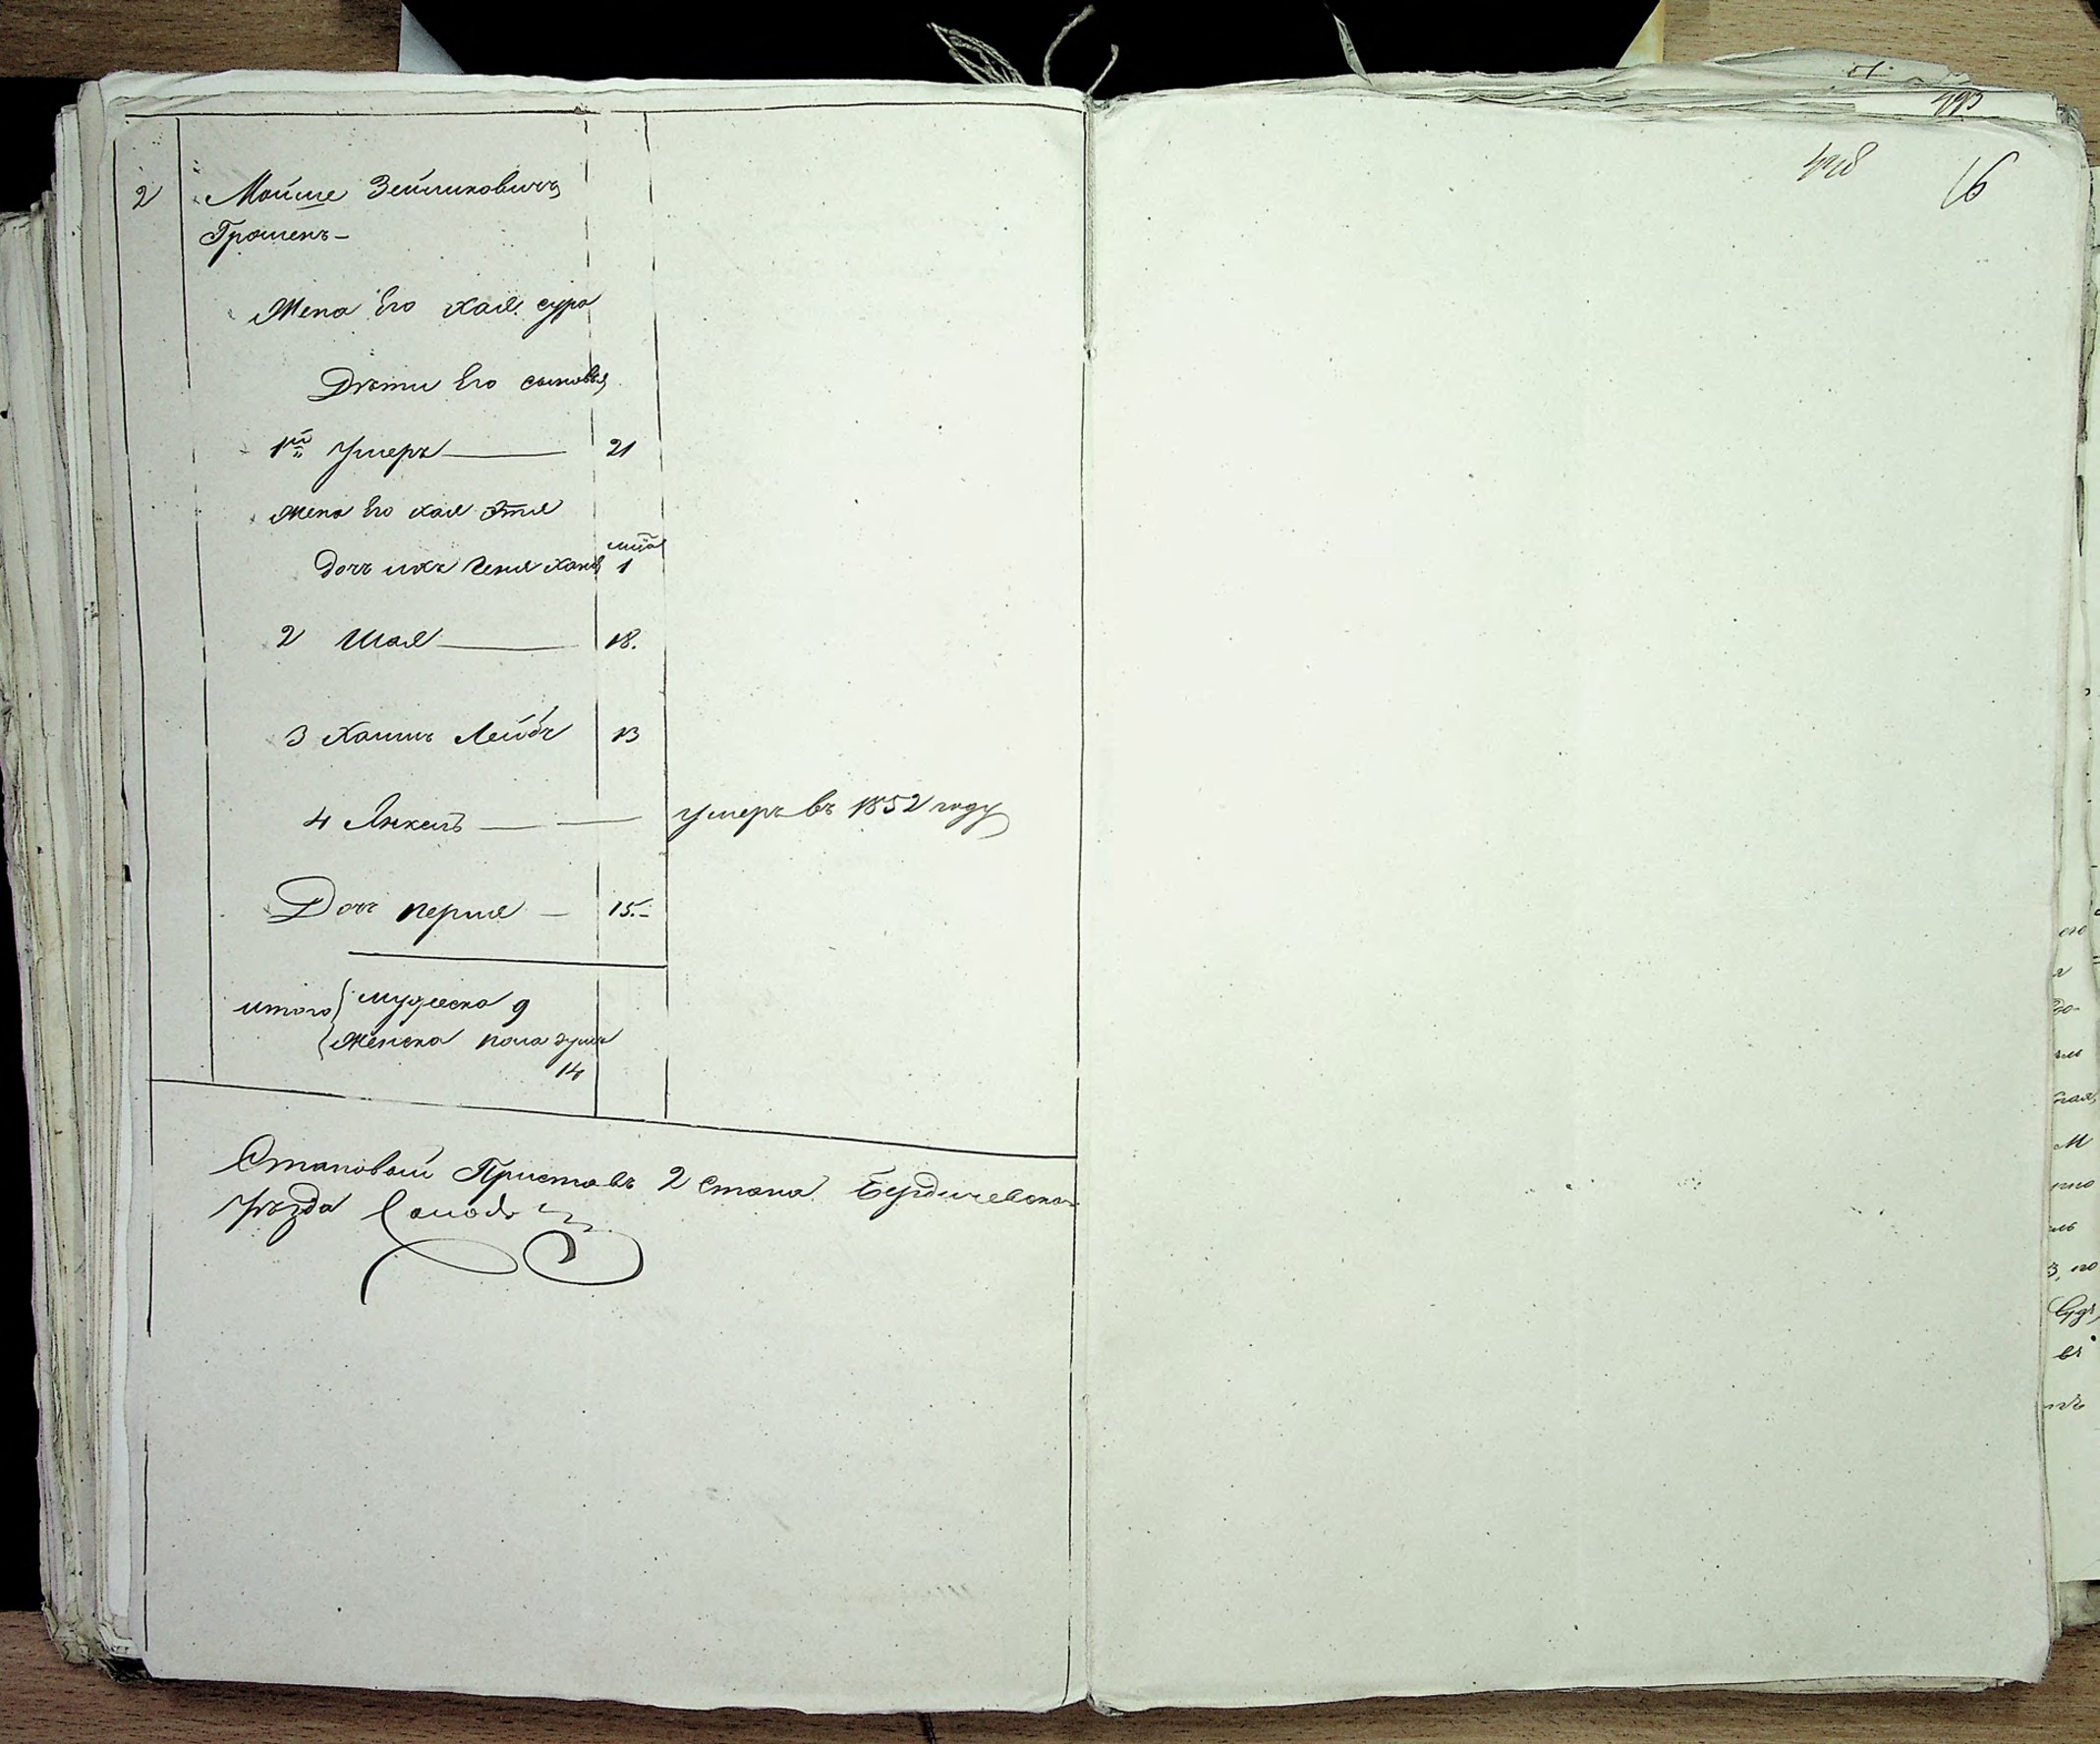 2 Мойше Зейликовичъ
Грошенъ —
Жена Его Хая Сура
Дѣти Его сыновья
1й Умеръ — 21
Жена Его Хая Этя
Дочь ихъ Геня Хана 1
2 Шая — 18.
3 Хаимъ Лейбъ 13
4 Янкель — умеръ въ 1852 году
Дочь Перля — 15. —
итого мужеска 9
Женска пола душъ
14
Становой Приставъ 2 Стана Бердичевскаго
Уѣзда
16